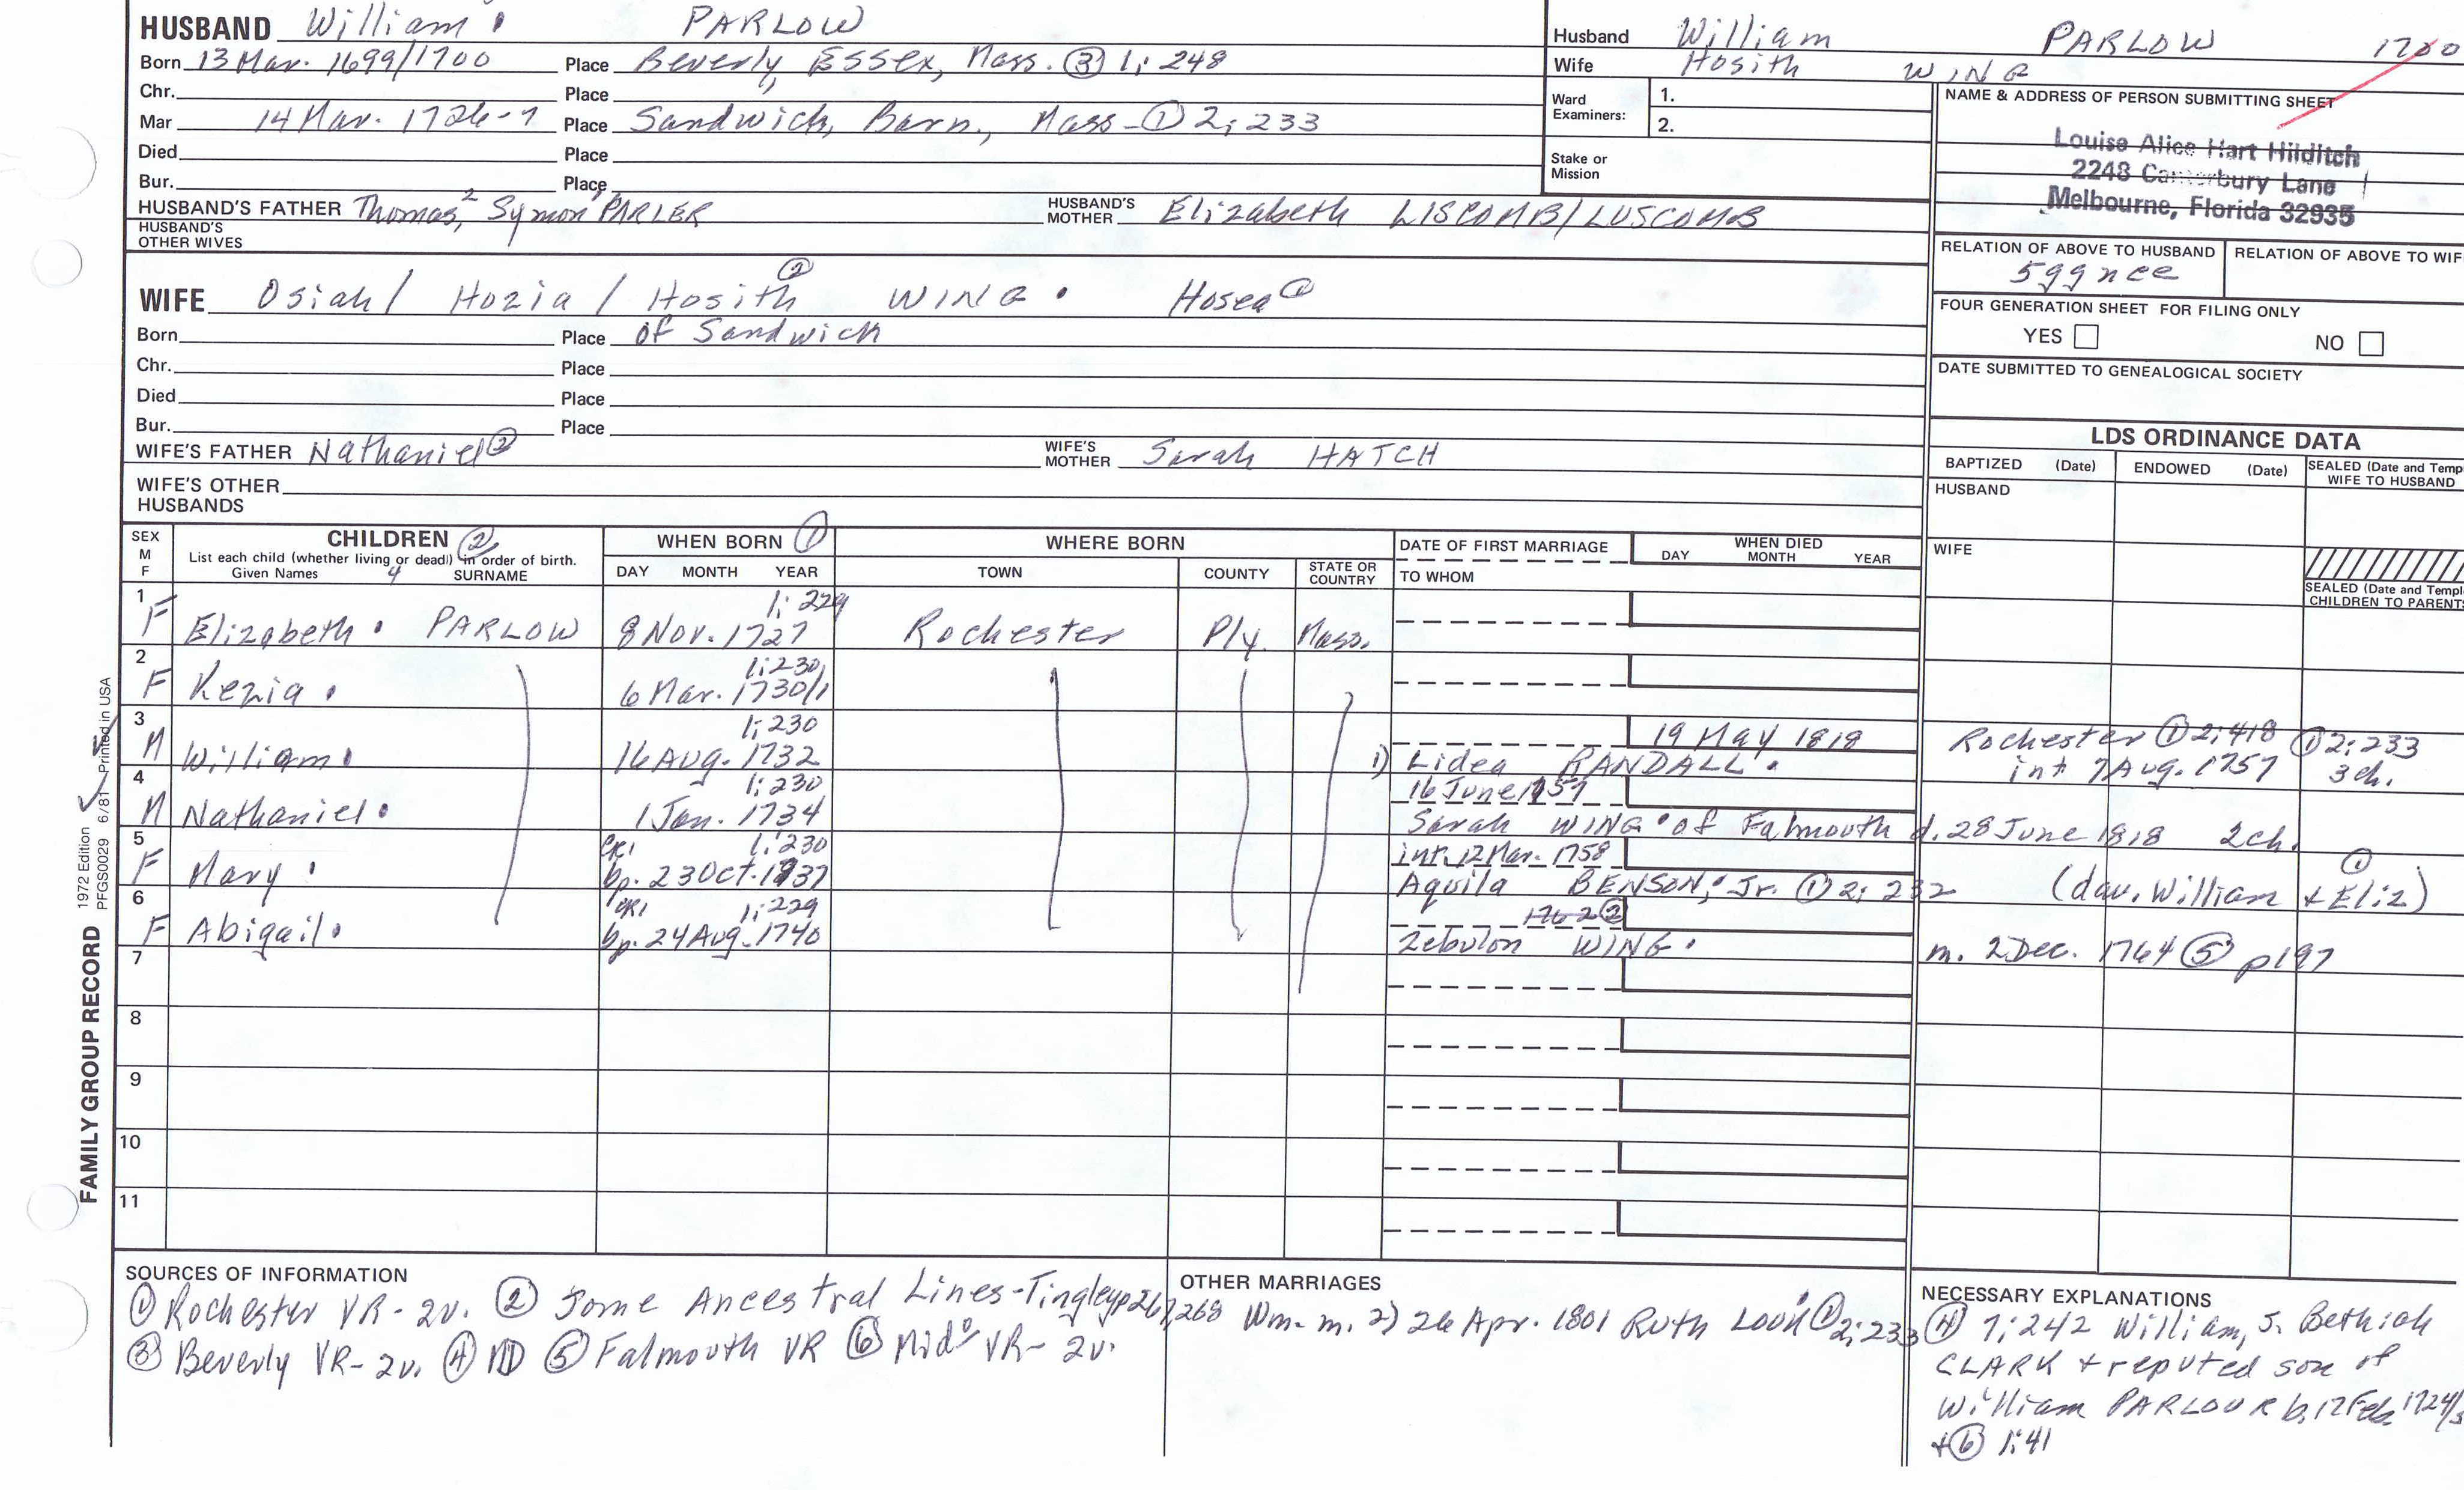 HUSBAND William PARLOW
Born 13 Mar. 1699/1700 Place Beverly, Essex, Mass. ③ 1:248
Chr. Place
Mar 14 Mar. 1726-7 Place Sandwich, Barn., Mass - ① 2:233
Died Place
Bur. Place
HUSBAND'S FATHER Thomas,² Symon¹ PARLER HUSBAND'S MOTHER Elizabeth LISCOMB/LUSCOMB
HUSBAND'S OTHER WIVES
Husband William PARLOW 1700
Wife Hosith WING
Ward Examiners: 1.
2.
Stake or Mission
NAME & ADDRESS OF PERSON SUBMITTING SHEET
Louise Alice Hart Hilditch
2248 Canterbury Lane
Melbourne, Florida 32935
RELATION OF ABOVE TO HUSBAND RELATION OF ABOVE TO WIF
5ggnee
FOUR GENERATION SHEET FOR FILING ONLY
YES NO
DATE SUBMITTED TO GENEALOGICAL SOCIETY
WIFE Osiah / Hozia / Hosith ② WING Hosea ①
Born Place of Sandwich
Chr. Place
Died Place
Bur. Place
WIFE'S FATHER Nathaniel ② WIFE'S MOTHER Sarah HATCH
WIFE'S OTHER HUSBANDS
LDS ORDINANCE DATA
BAPTIZED (Date) ENDOWED (Date) SEALED (Date and Temp
WIFE TO HUSBAND
HUSBAND
WIFE
SEALED (Date and Templ
CHILDREN TO PARENT
SEX M F CHILDREN ② WHEN BORN ① WHERE BORN DATE OF FIRST MARRIAGE WHEN DIED
List each child (whether living or dead) in order of birth.
Given Names 4 SURNAME DAY MONTH YEAR TOWN COUNTY STATE OR COUNTRY TO WHOM DAY MONTH YEAR
1 1:229
F Elizabeth PARLOW 8 Nov. 1727 Rochester Ply. Mass.
2 1:230
F Kezia 6 Mar. 1730/1
3 1:230 19 May 1818 Rochester ① 2:418 ① 2:233
M William 16 Aug. 1732 1) Lidea RANDALL int 7 Aug. 1757 3 ch.
4 1:230 16 June 1757
M Nathaniel 1 Jan. 1734 Sarah WING of Falmouth d. 28 June 1818 2 ch.
5 CR1 1:230 int. 12 Mar. 1758
F Mary bp. 23 Oct. 1737 Aquila BENSON, Jr. ① 2:232 (dau. William & Eliz) ①
6 CR1 1:229 1762 ②
F Abigail bp. 24 Aug. 1740 Zebulon WING m. 2 Dec. 1764 ⑤ p197
7
8
9
10
11
FAMILY GROUP RECORD 1972 Edition
PFGS0029 6/81 Printed in USA
SOURCES OF INFORMATION
① Rochester VR - 2v. ② Some Ancestral Lines - Tingley p267, 268
③ Beverly VR - 2v. ④ MD ⑤ Falmouth VR ⑥ Mid° VR - 2v.
OTHER MARRIAGES
Wm. m. 2) 26 Apr. 1801 Ruth LOOK ① 2:233
NECESSARY EXPLANATIONS
④ 7:242 William, s. Bethiah
CLARK + reputed son of
William PARLOUR b. 17 Feb. 1724/5
+ ⑥ 1:41